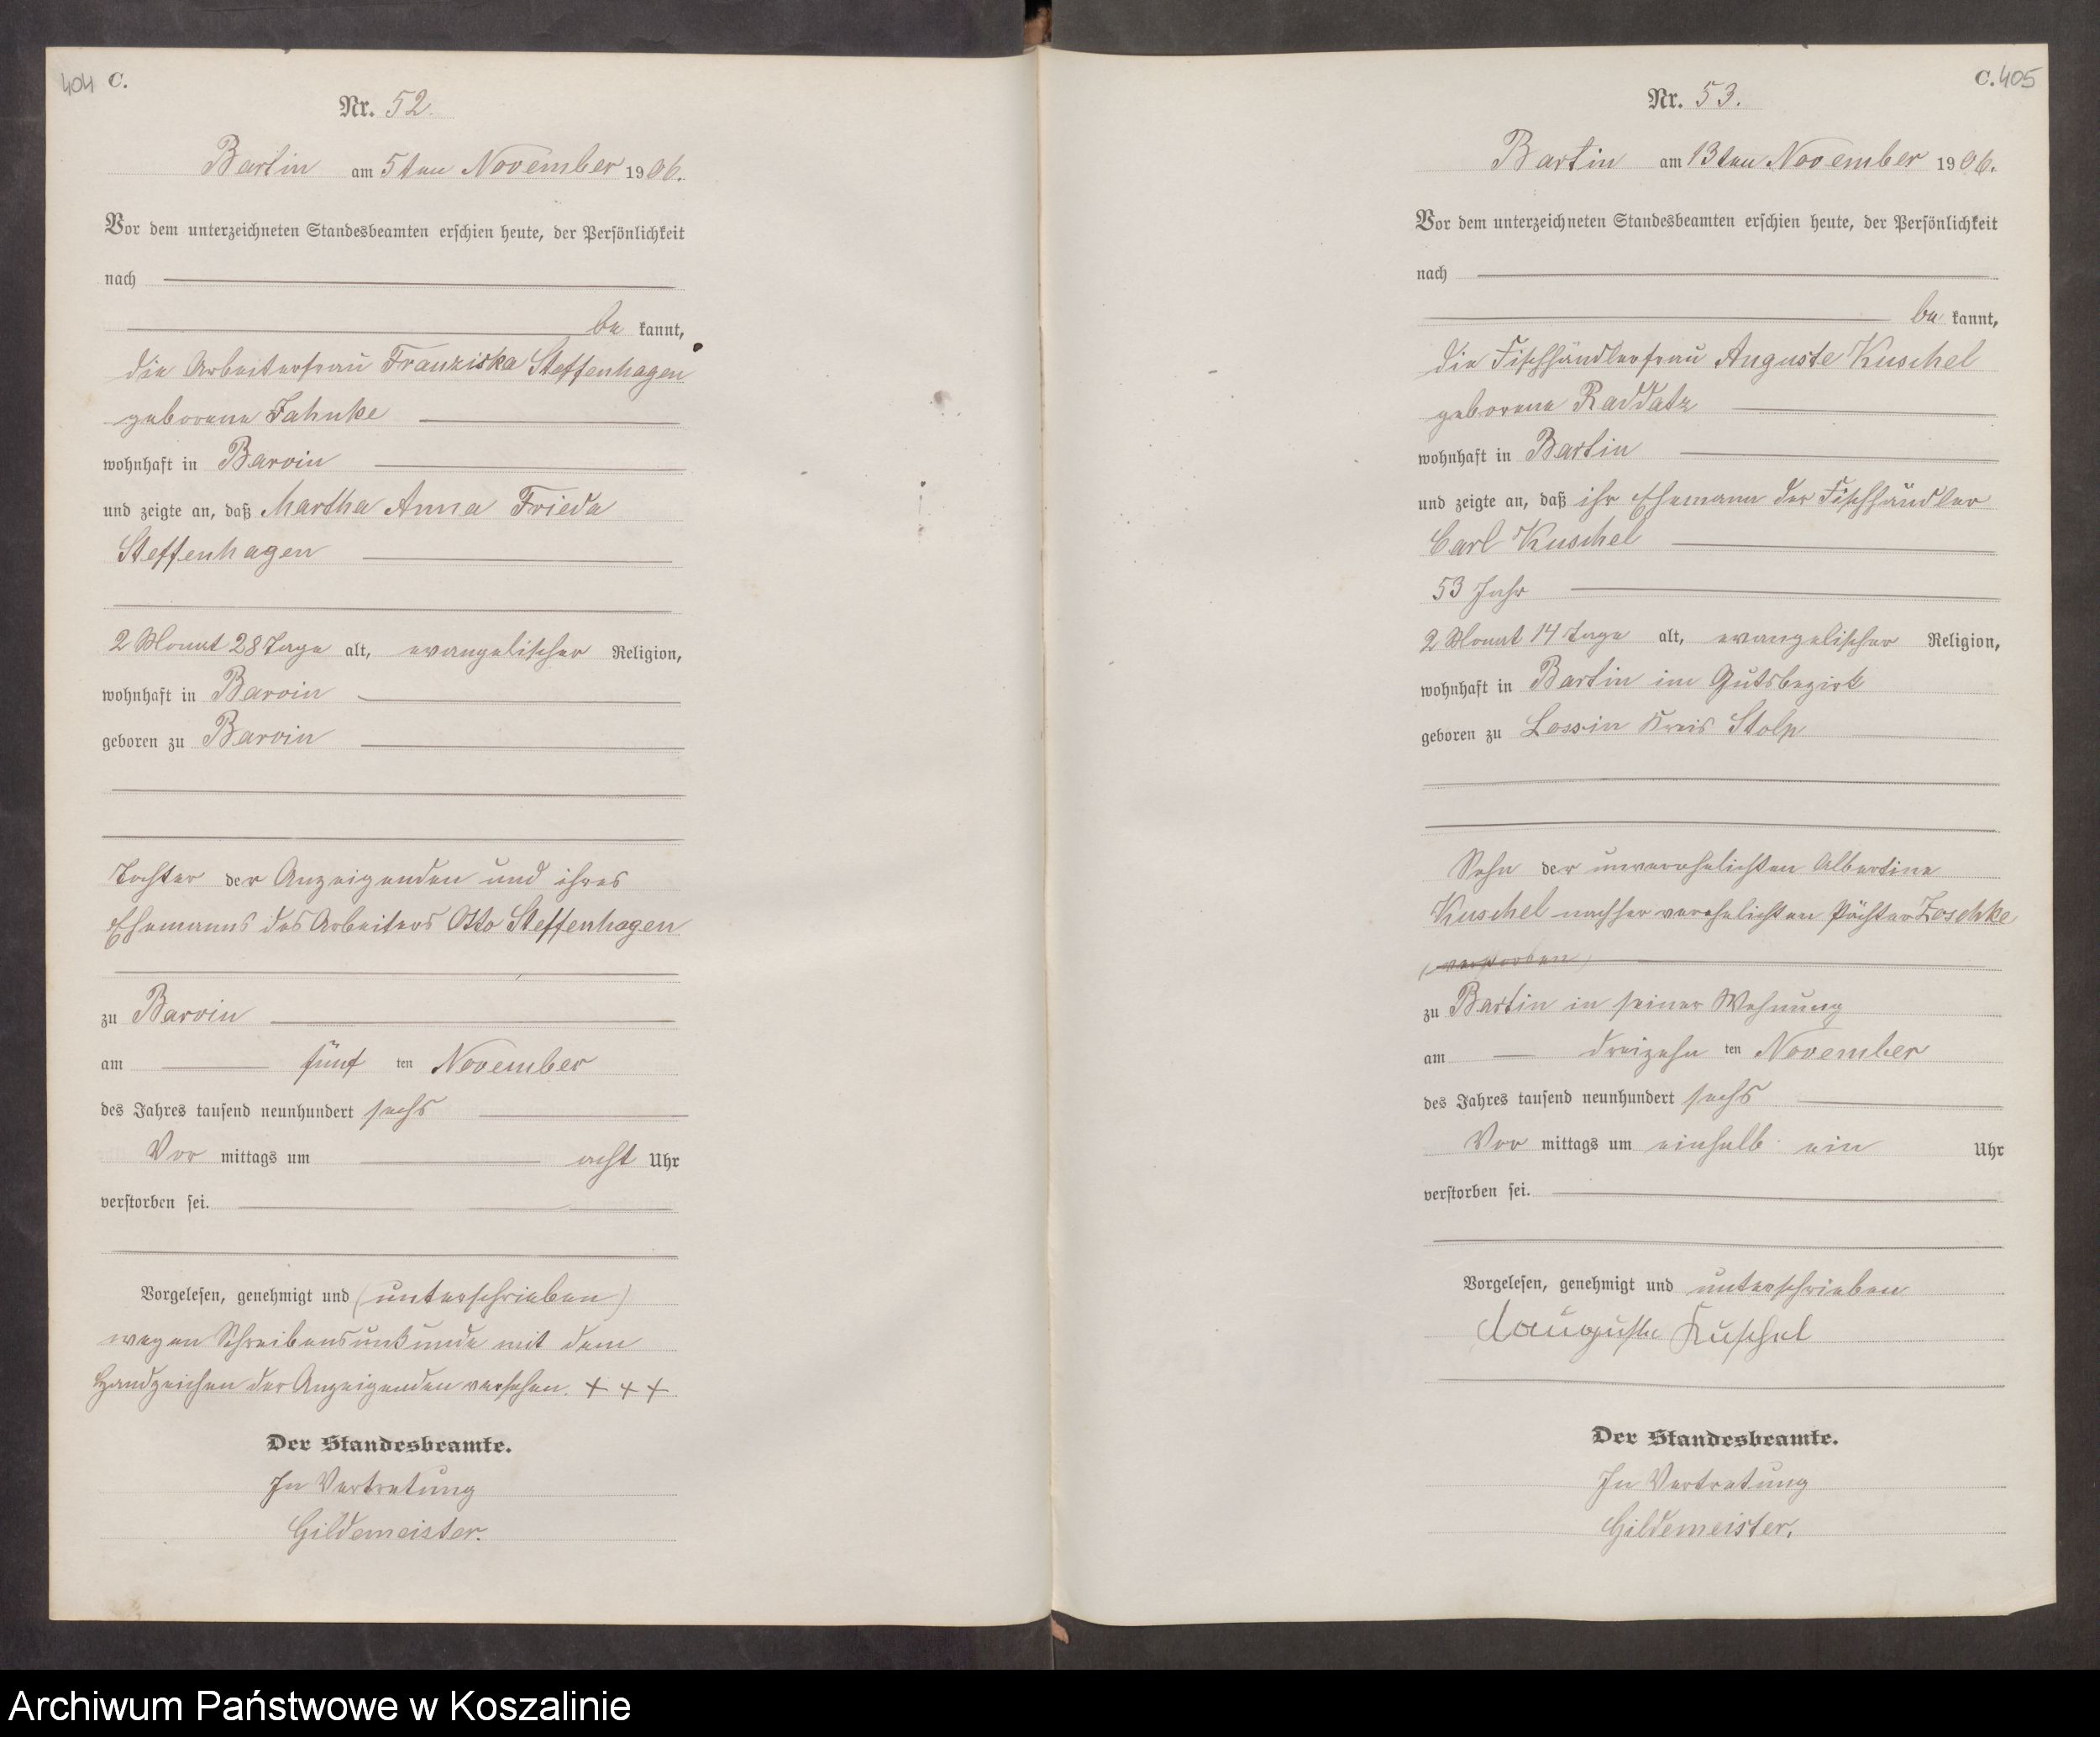 404 C.
Nr. 52.
Bartin am 5ten November 1906.
Vor dem unterzeichneten Standesbeamten erschien heute, der Persönlichkeit
nach
be kannt,
die Arbeiterfrau Franziska Steffenhagen
geborene Jahnke
wohnhaft in Barvin
und zeigte an, daß Martha Anna Frieda
Steffenhagen
2 Monat 28 Tage alt, evangelischer Religion,
wohnhaft in Barvin
geboren zu Barvin
Tochter der Anzeigenden und ihres
Ehemanns des Arbeiters Otto Steffenhagen
zu Barvin
am fünf ten November
des Jahres tausend neunhundert sechs
Vor mittags um acht Uhr
verstorben sei.
Vorgelesen, genehmigt und (unterschrieben)
wegen Schreibensunkunde mit dem
Handzeichen der Anzeigenden versehen. + + +
Der Standesbeamte.
In Vertretung
Gildemeister.
C. 405
Nr. 53.
Bartin am 13ten November 1906.
Vor dem unterzeichneten Standesbeamten erschien heute, der Persönlichkeit
nach
be kannt,
die Fischhändlerfrau Auguste Kuschel
geborene Raddatz
wohnhaft in Bartin
und zeigte an, daß ihr Ehemann der Fischhändler
Carl Kuschel
53 Jahr
2 Monat 14 Tage alt, evangelischer Religion,
wohnhaft in Bartin im Gutsbezirk
geboren zu Lossin Kreis Stolp
Sohn der unverehelichten Albertine
Kuschel nachher verehelichten Pächter Zoschke
(verstorben)
zu Bartin in seiner Wohnung
am dreizehn ten November
des Jahres tausend neunhundert sechs
Vor mittags um einhalb ein Uhr
verstorben sei.
Vorgelesen, genehmigt und unterschrieben
Auguste Kuschel
Der Standesbeamte.
In Vertretung
Gildemeister.
Archiwum Państwowe w Koszalinie